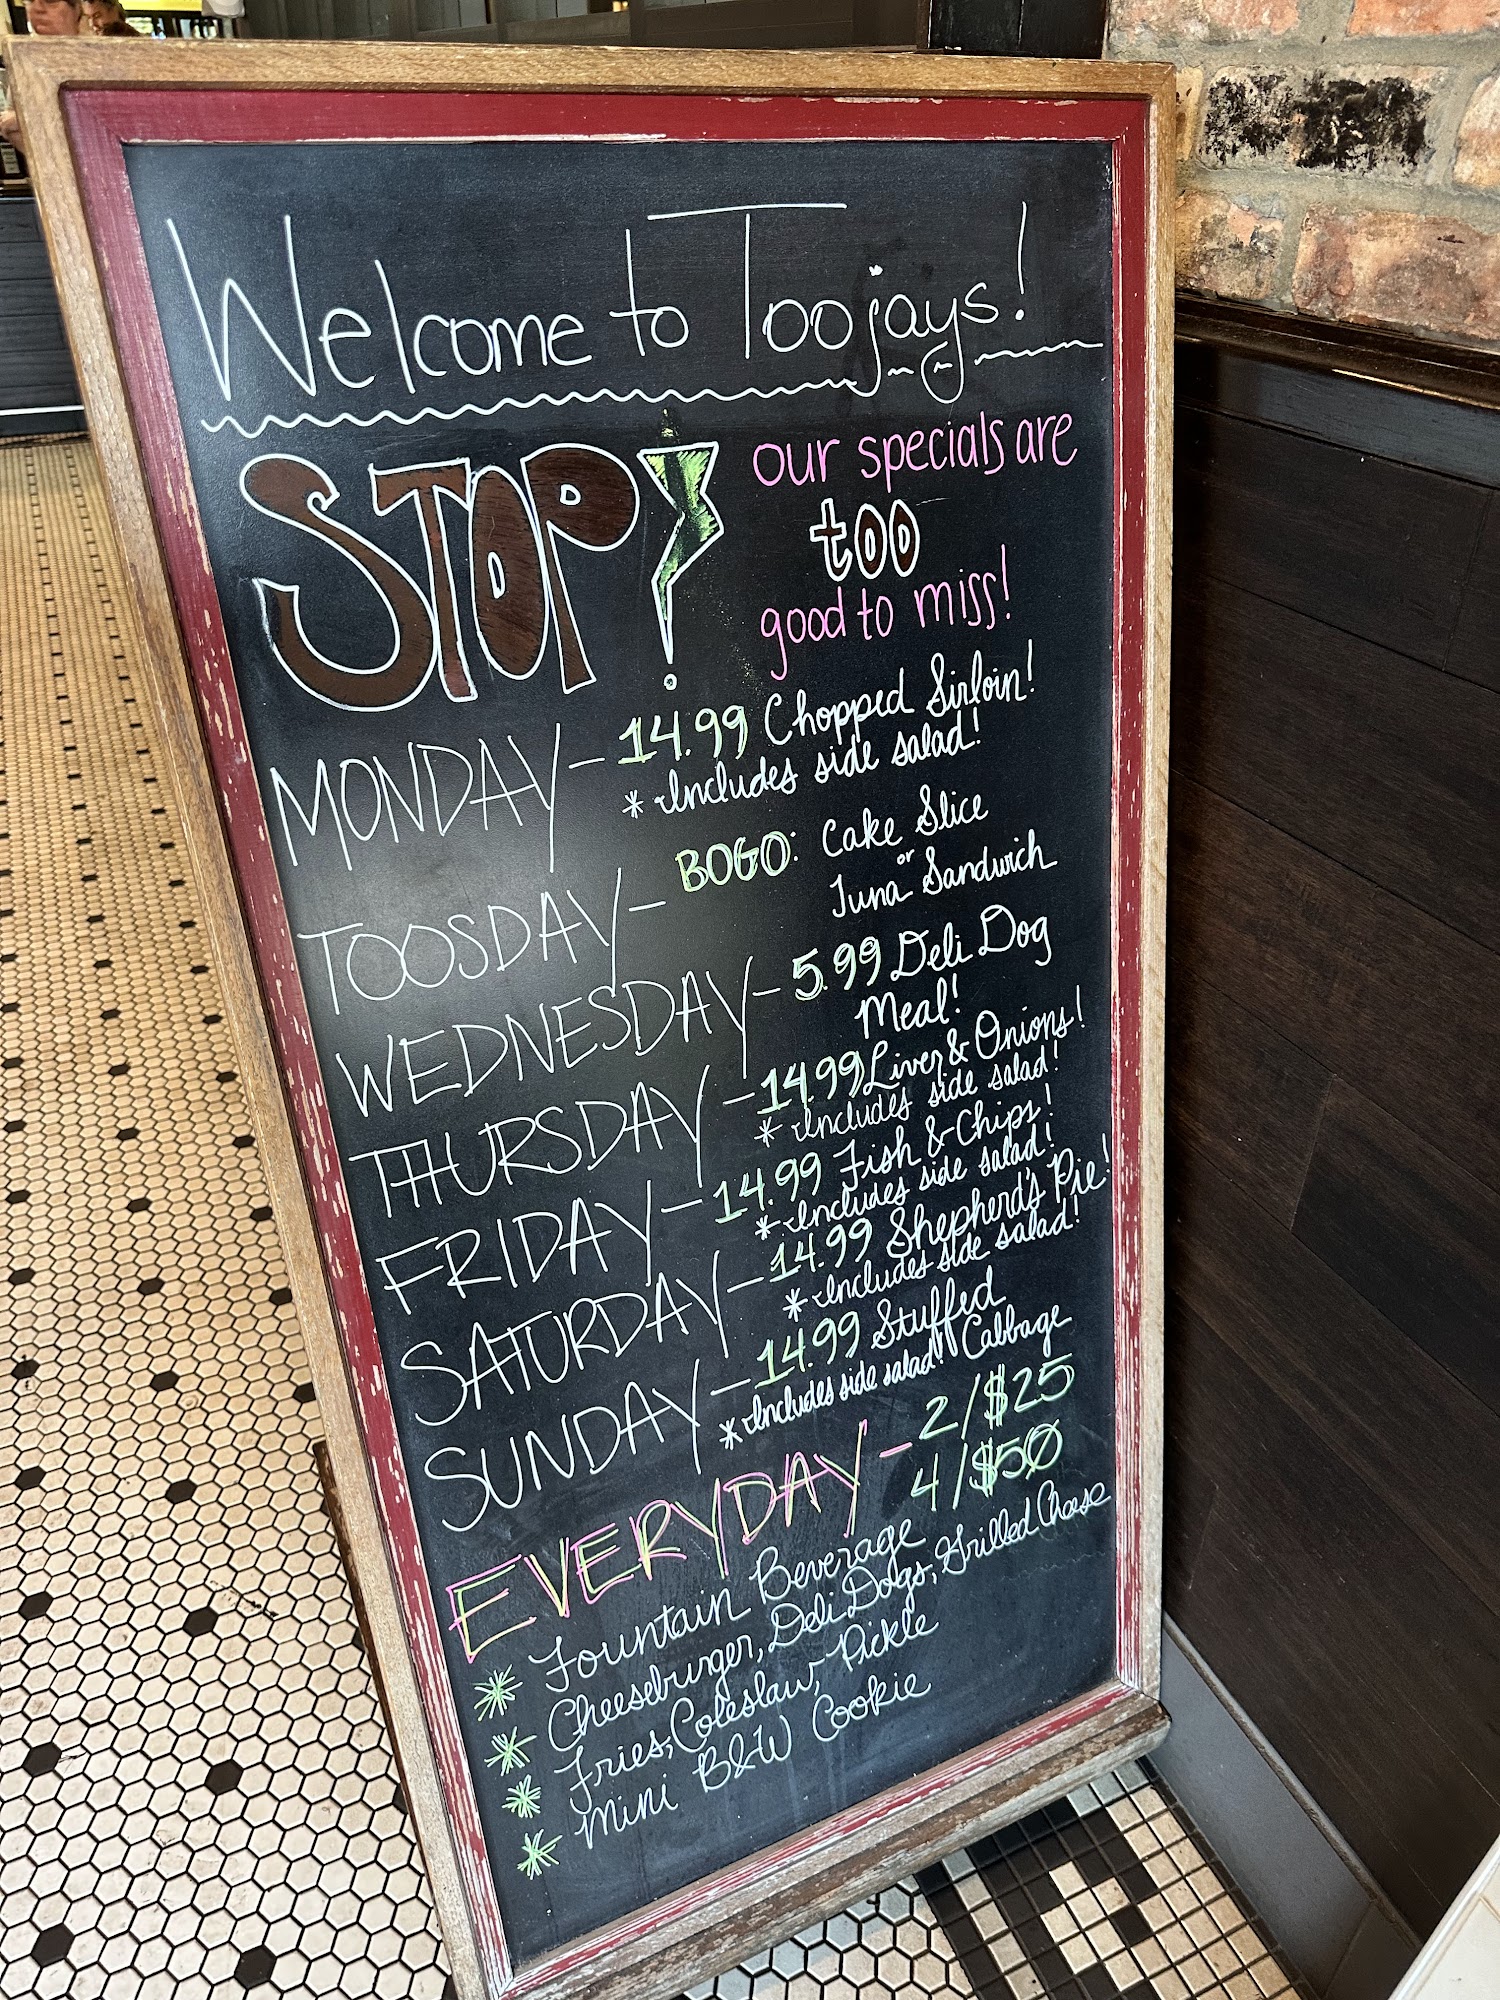 Welcome to Toojays!
STOP! our specials are
too
good to miss!
MONDAY - 14.99 Chopped Sirloin!
* Includes side salad!
TOOSDAY - BOGO: Cake Slice
or
Tuna Sandwich
WEDNESDAY - 5.99 Deli Dog
Meal!
THURSDAY - 14.99 Liver & Onions!
* Includes side salad!
FRIDAY - 14.99 Fish & Chips!
* Includes side salad!
SATURDAY - 14.99 Shepherd's Pie!
* Includes side salad!
SUNDAY - 14.99 Stuffed
* Includes side salad! Cabbage
EVERYDAY - 2/$25
4/$50
* Fountain Beverage
* Cheeseburger, Deli Dogs, Grilled Cheese
* Fries, Coleslaw, Pickle
* Mini B&W Cookie